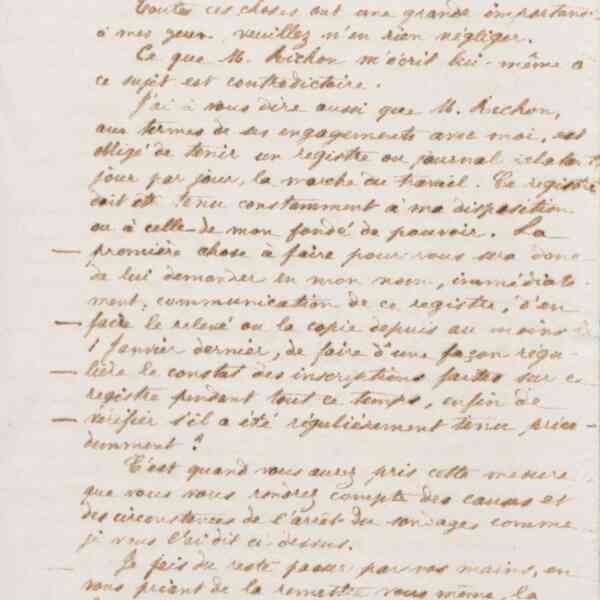 Toutes ces choses ont une grande importan
à mes yeux veuillez n'en rien négliger.
Ce que M. Richon m'écrit lui-même à
ce sujet est contradictoire.
J'ai à vous dire aussi que M. Richon,
aux termes de ses engagements avec moi, est
obligé de tenir un registre ou journal relatant
jour par jour, la marche du travail. Ce registre
doit être tenu constamment à ma disposition
ou à celle de mon fondé de pouvoir. La
première chose à faire pour vous sera donc
de lui demander en mon nom, immédiate-
ment, communication de ce registre, d'en
faire le relevé ou la copie depuis au moins le
1 Janvier dernier, de faire d'une façon régu-
lière le constat des inscriptions faites sur ce
registre pendant tout ce temps, enfin de
vérifier s'il a été régulièrement tenu précé-
demment ?
C'est quand vous aurez pris cette mesure
que vous vous rendrez compte des causes et
des circonstances de l'arrêt du sondages comme
je vous l'ai dit ci dessus.
Je fais du reste passer par vos mains, en
vous priant de la remettre vous même, la